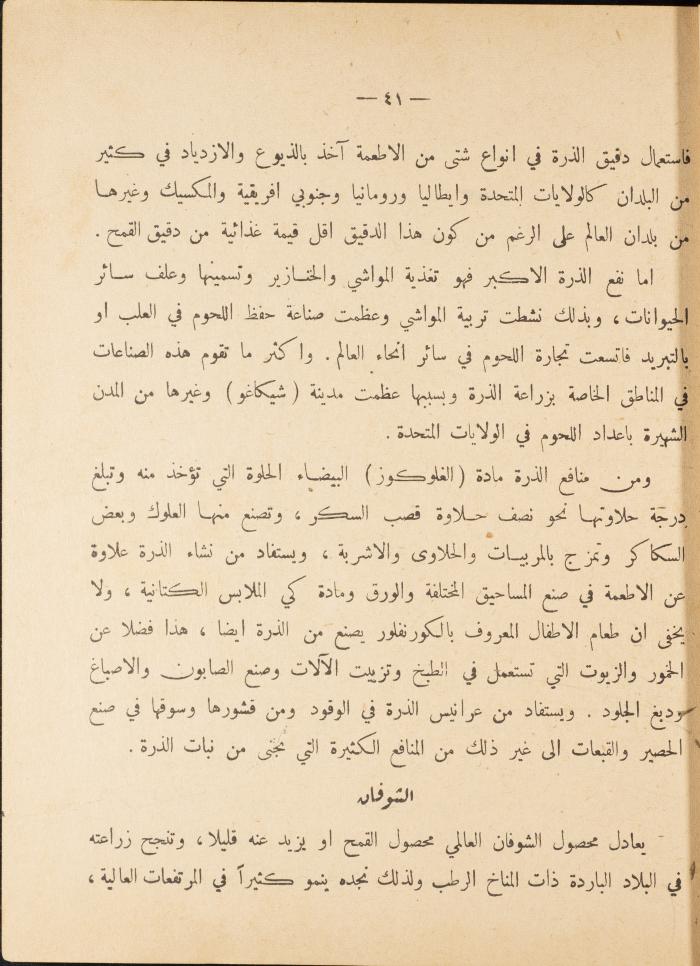 — ٤١ —
فاستعمال دقيق الذرة في انواع شتى من الاطعمة آخذ بالذيوع والازدياد في كثير
من البلدان كالولايات المتحدة وايطاليا ورومانيا وجنوبي افريقية والمكسيك وغيرها
من بلدان العالم على الرغم من كون هذا الدقيق اقل قيمة غذائية من دقيق القمح .
اما نفع الذرة الاكبر فهو تغذية المواشي والخنازير وتسمينها وعلف سائر
الحيوانات ، وبذلك نشطت تربية المواشي وعظمت صناعة حفظ اللحوم في العلب او
بالتبريد فاتسعت تجارة اللحوم في سائر انحاء العالم . واكثر ما تقوم هذه الصناعات
في المناطق الخاصة بزراعة الذرة وبسببها عظمت مدينة ( شيكاغو ) وغيرها من المدن
الشهيرة باعداد اللحوم في الولايات المتحدة .
ومن منافع الذرة مادة ( الغلوكوز ) البيضاء الحلوة التي تؤخذ منه وتبلغ
درجة حلاوتها نحو نصف حلاوة قصب السكر ، وتصنع منها العلوك وبعض
السكاكر وتمزج بالمربيات والحلاوى والاشربة ، ويستفاد من نشاء الذرة علاوة
عن الاطعمة في صنع المساحيق المختلفة والورق ومادة كي الملابس الكتانية ، ولا
يخفى ان طعام الاطفال المعروف بالكورنفلور يصنع من الذرة ايضا ، هذا فضلا عن
الخمور والزيوت التي تستعمل في الطبخ وتزييت الآلات وصنع الصابون والاصباغ
ودبغ الجلود . ويستفاد من عرانيس الذرة في الوقود ومن قشورها وسوقها في صنع
الحصير والقبعات الى غير ذلك من المنافع الكثيرة التي تجنى من نبات الذرة .
الشوفان
يعادل محصول الشوفان العالمي محصول القمح او يزيد عنه قليلا ، وتنجح زراعته
في البلاد الباردة ذات المناخ الرطب ولذلك نجده ينمو كثيراً في المرتفعات العالية ،